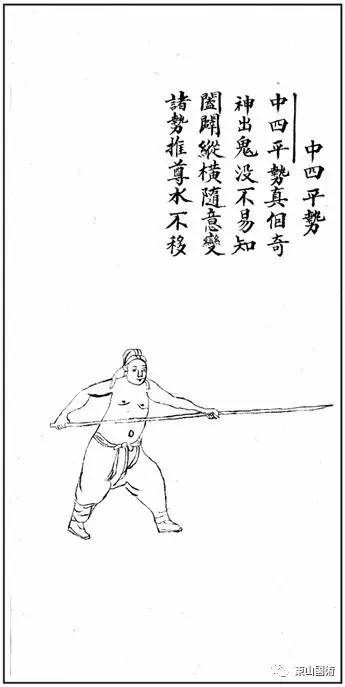 中四平勢
中四平勢真佪奇
神出鬼没不易知
闔闢縱橫隨意變
諸勢推尊永不移
東山國術